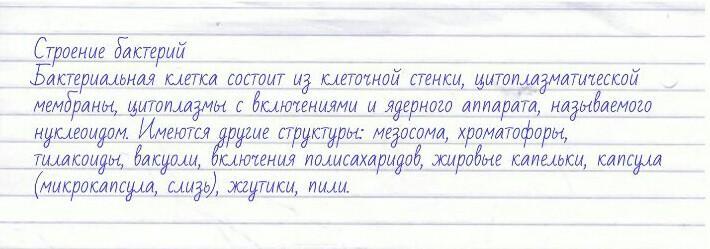 Строение бактерий
Бактериальная клетка состоит из клеточной стенки, цитоплазматической
мембраны, цитоплазмы с включениями и ядерного аппарата, называемого
нуклеоидом. Имеются другие структуры: мезосома, хроматофоры,
тилакоиды, вакуоли, включения полисахаридов, жировые капельки, капсула
(микрокапсула, слизь), жгутики, пили.